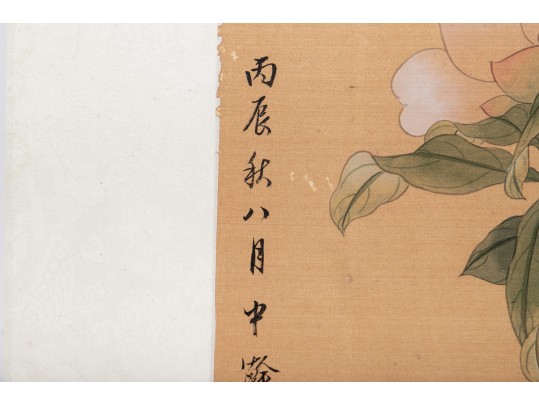 丙辰秋八月中